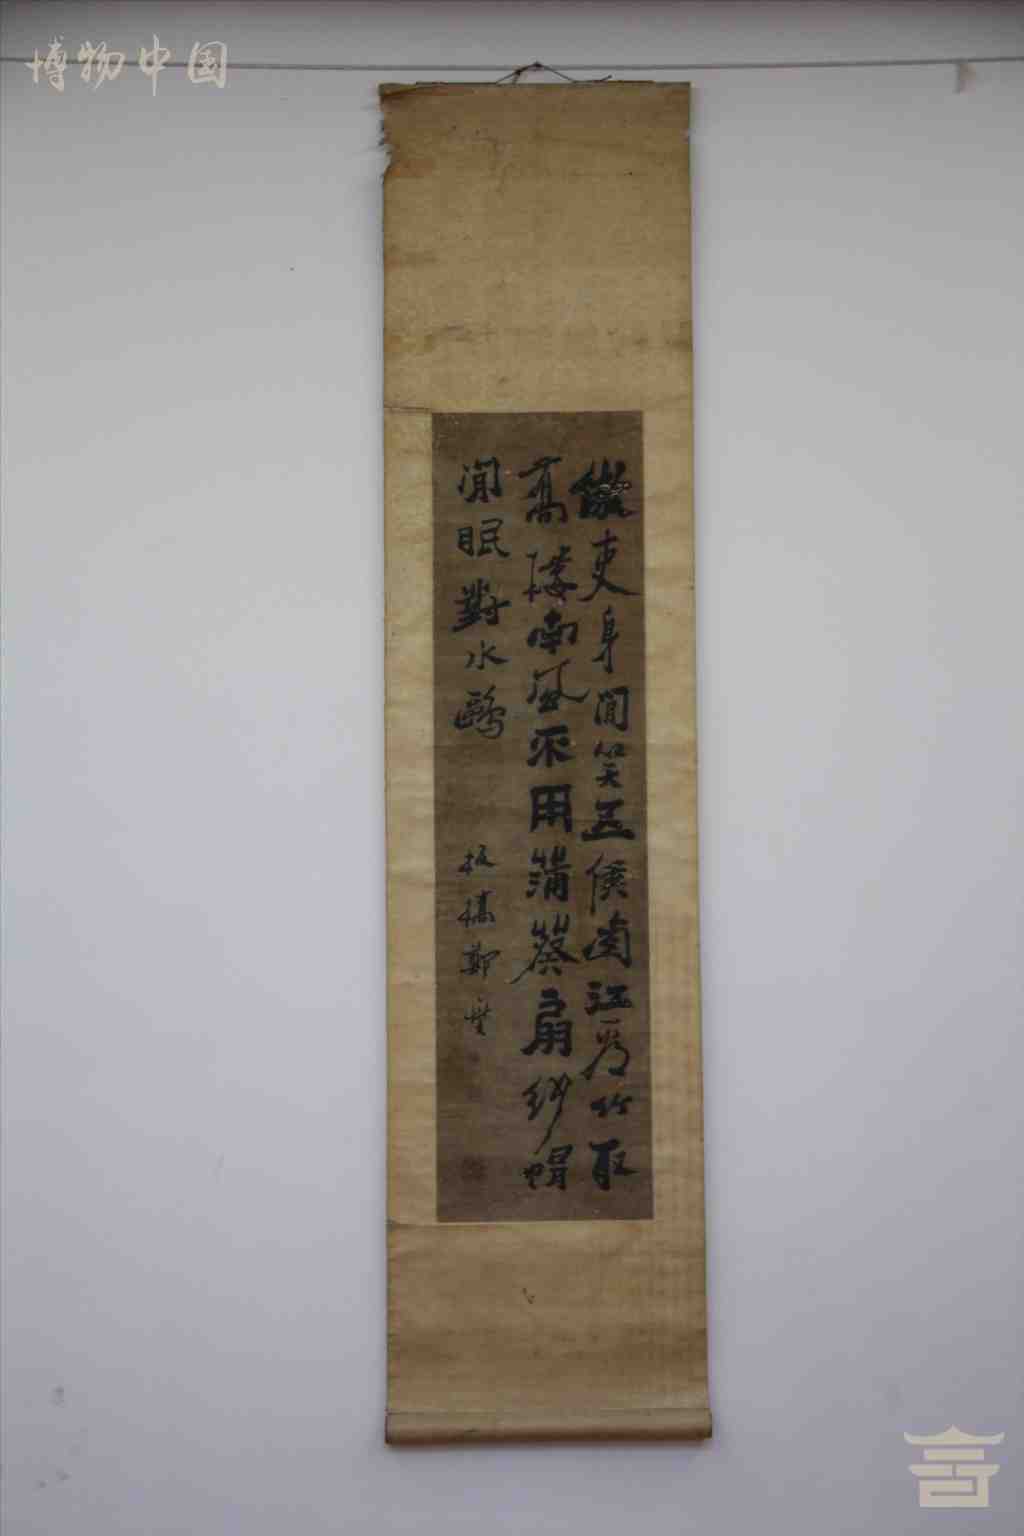 博物中国
傲吏身閒笑五侯西江竹取
高樓南風不用蒲葵扇紗帽
閒眠對水鷗
板橋鄭燮